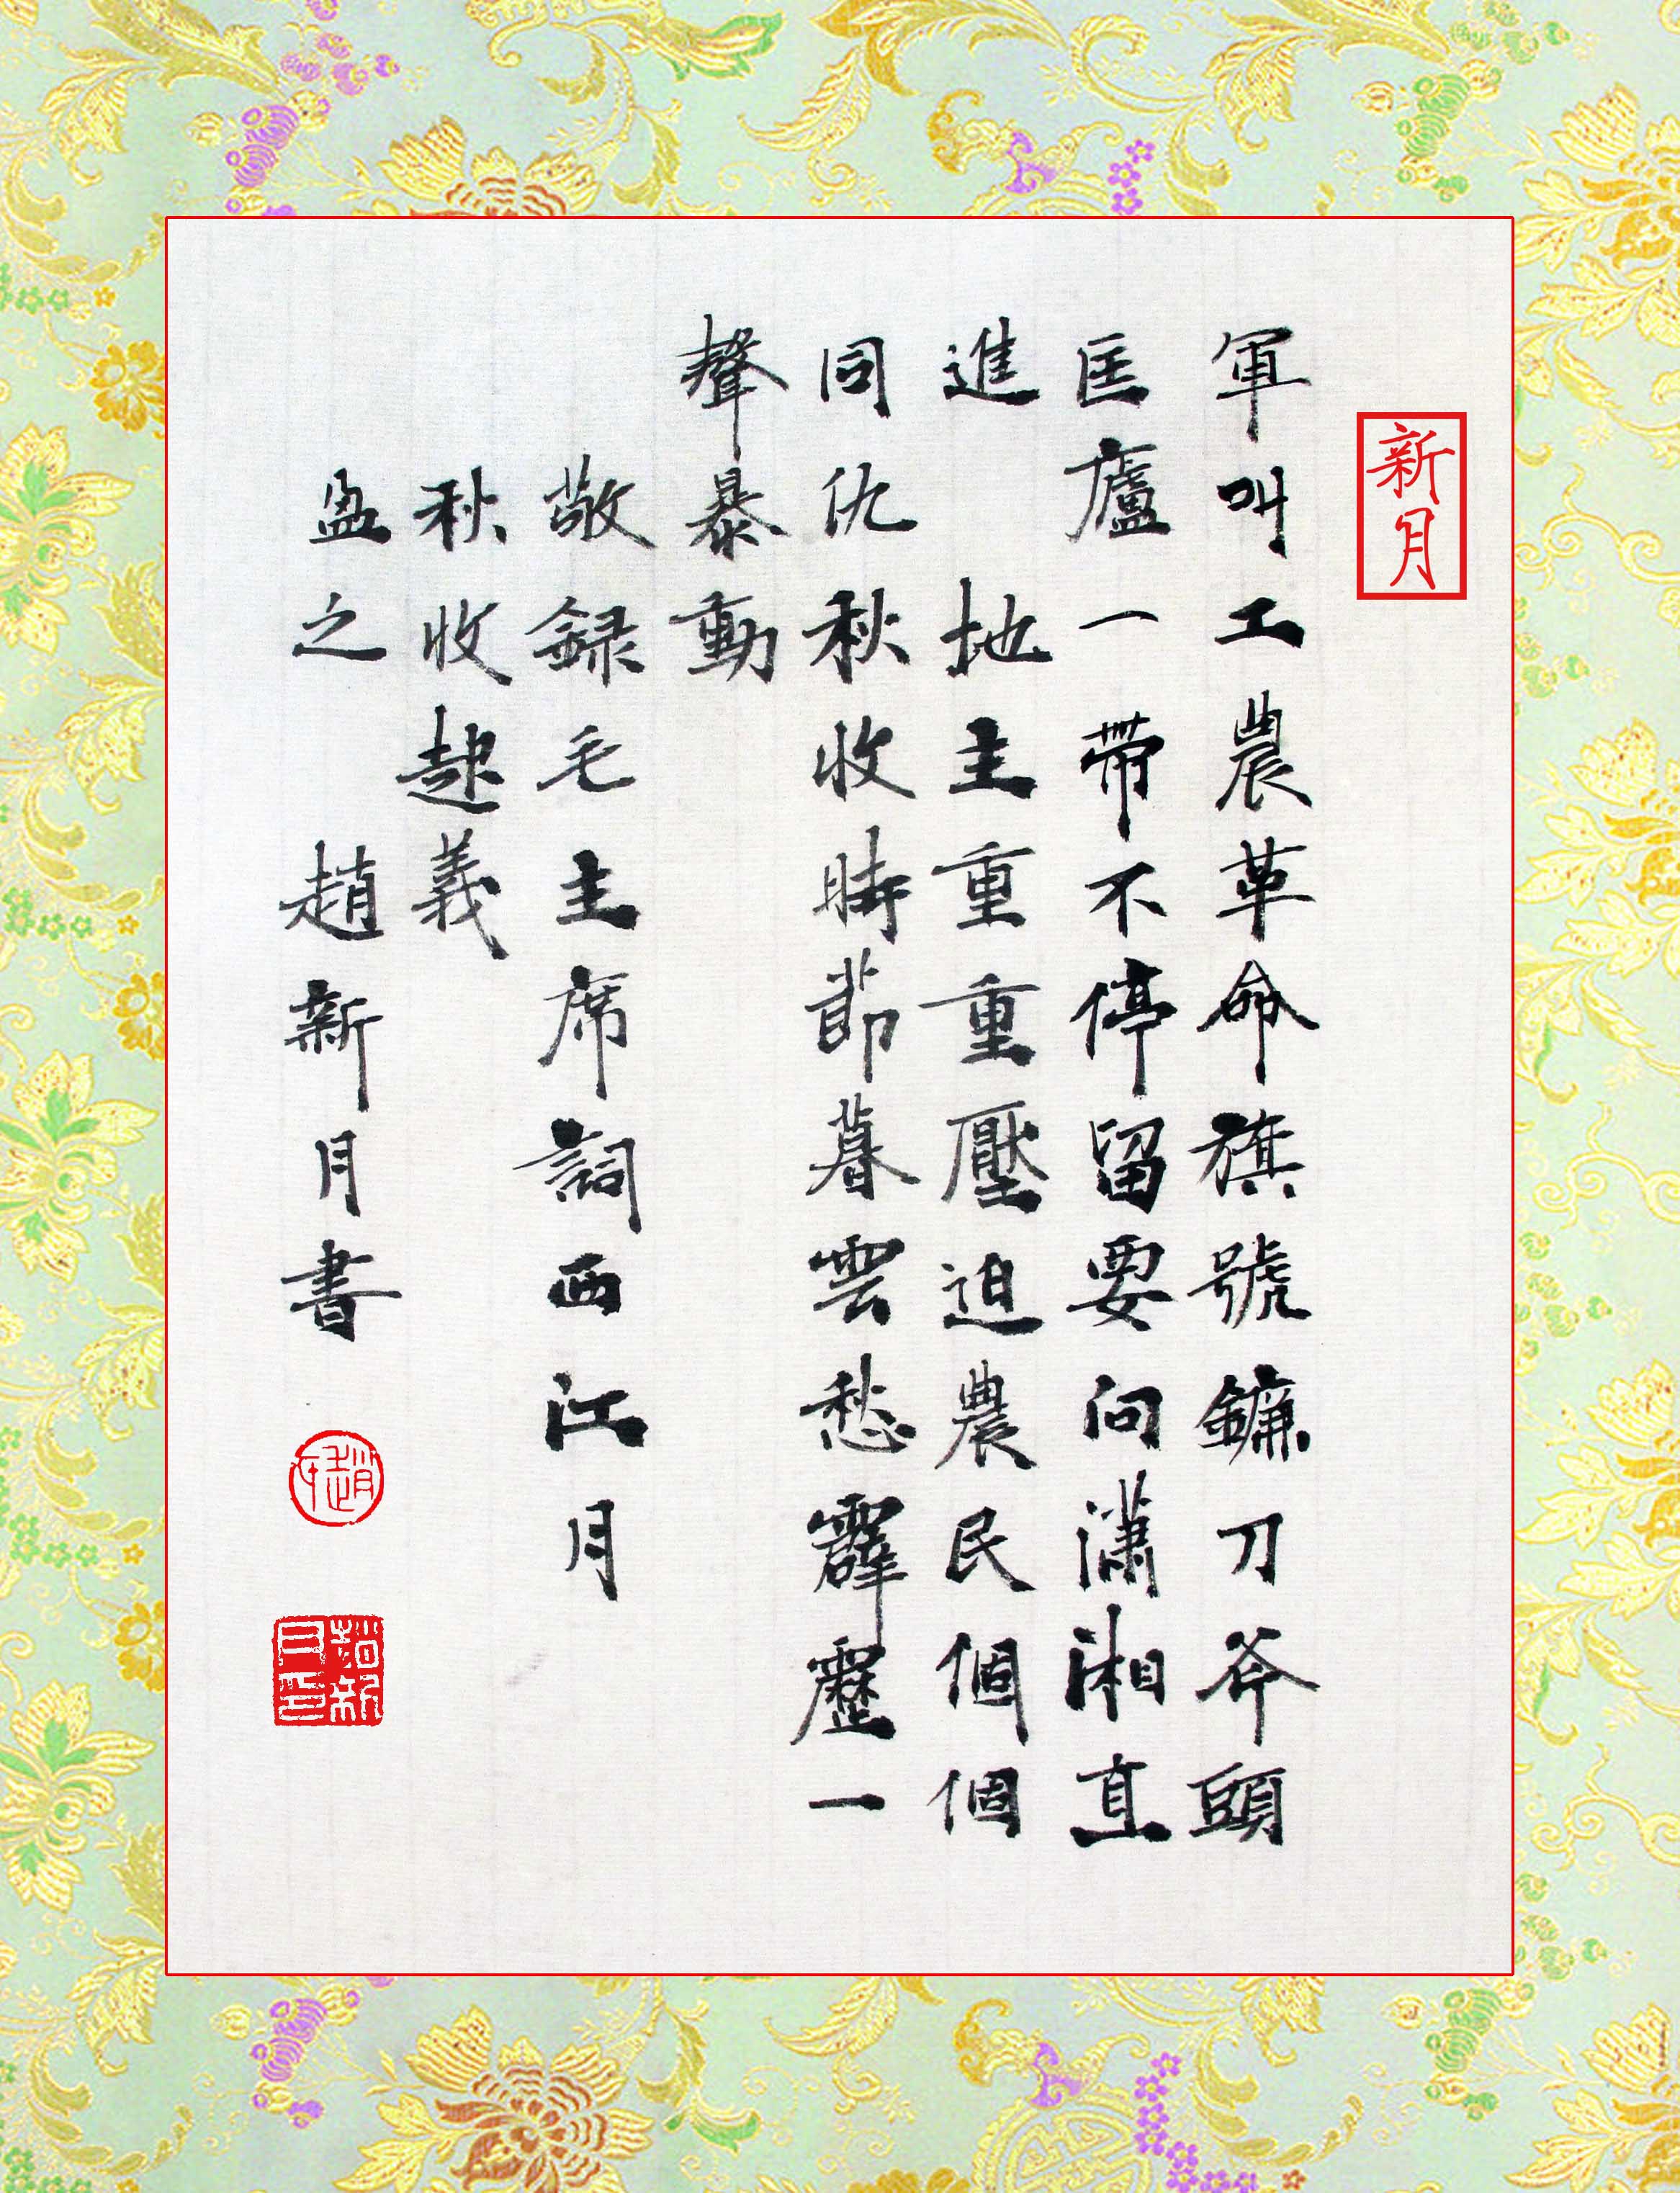 新月
軍叫工農革命旗號鐮刀斧頭
匡廬一帶不停留要向瀟湘直
進 地主重重壓迫農民個個
同仇秋收時節暮雲愁霹靂一
聲暴動
敬録毛主席詞西江月
秋收起義
盈之 趙新月書
趙
趙新月印